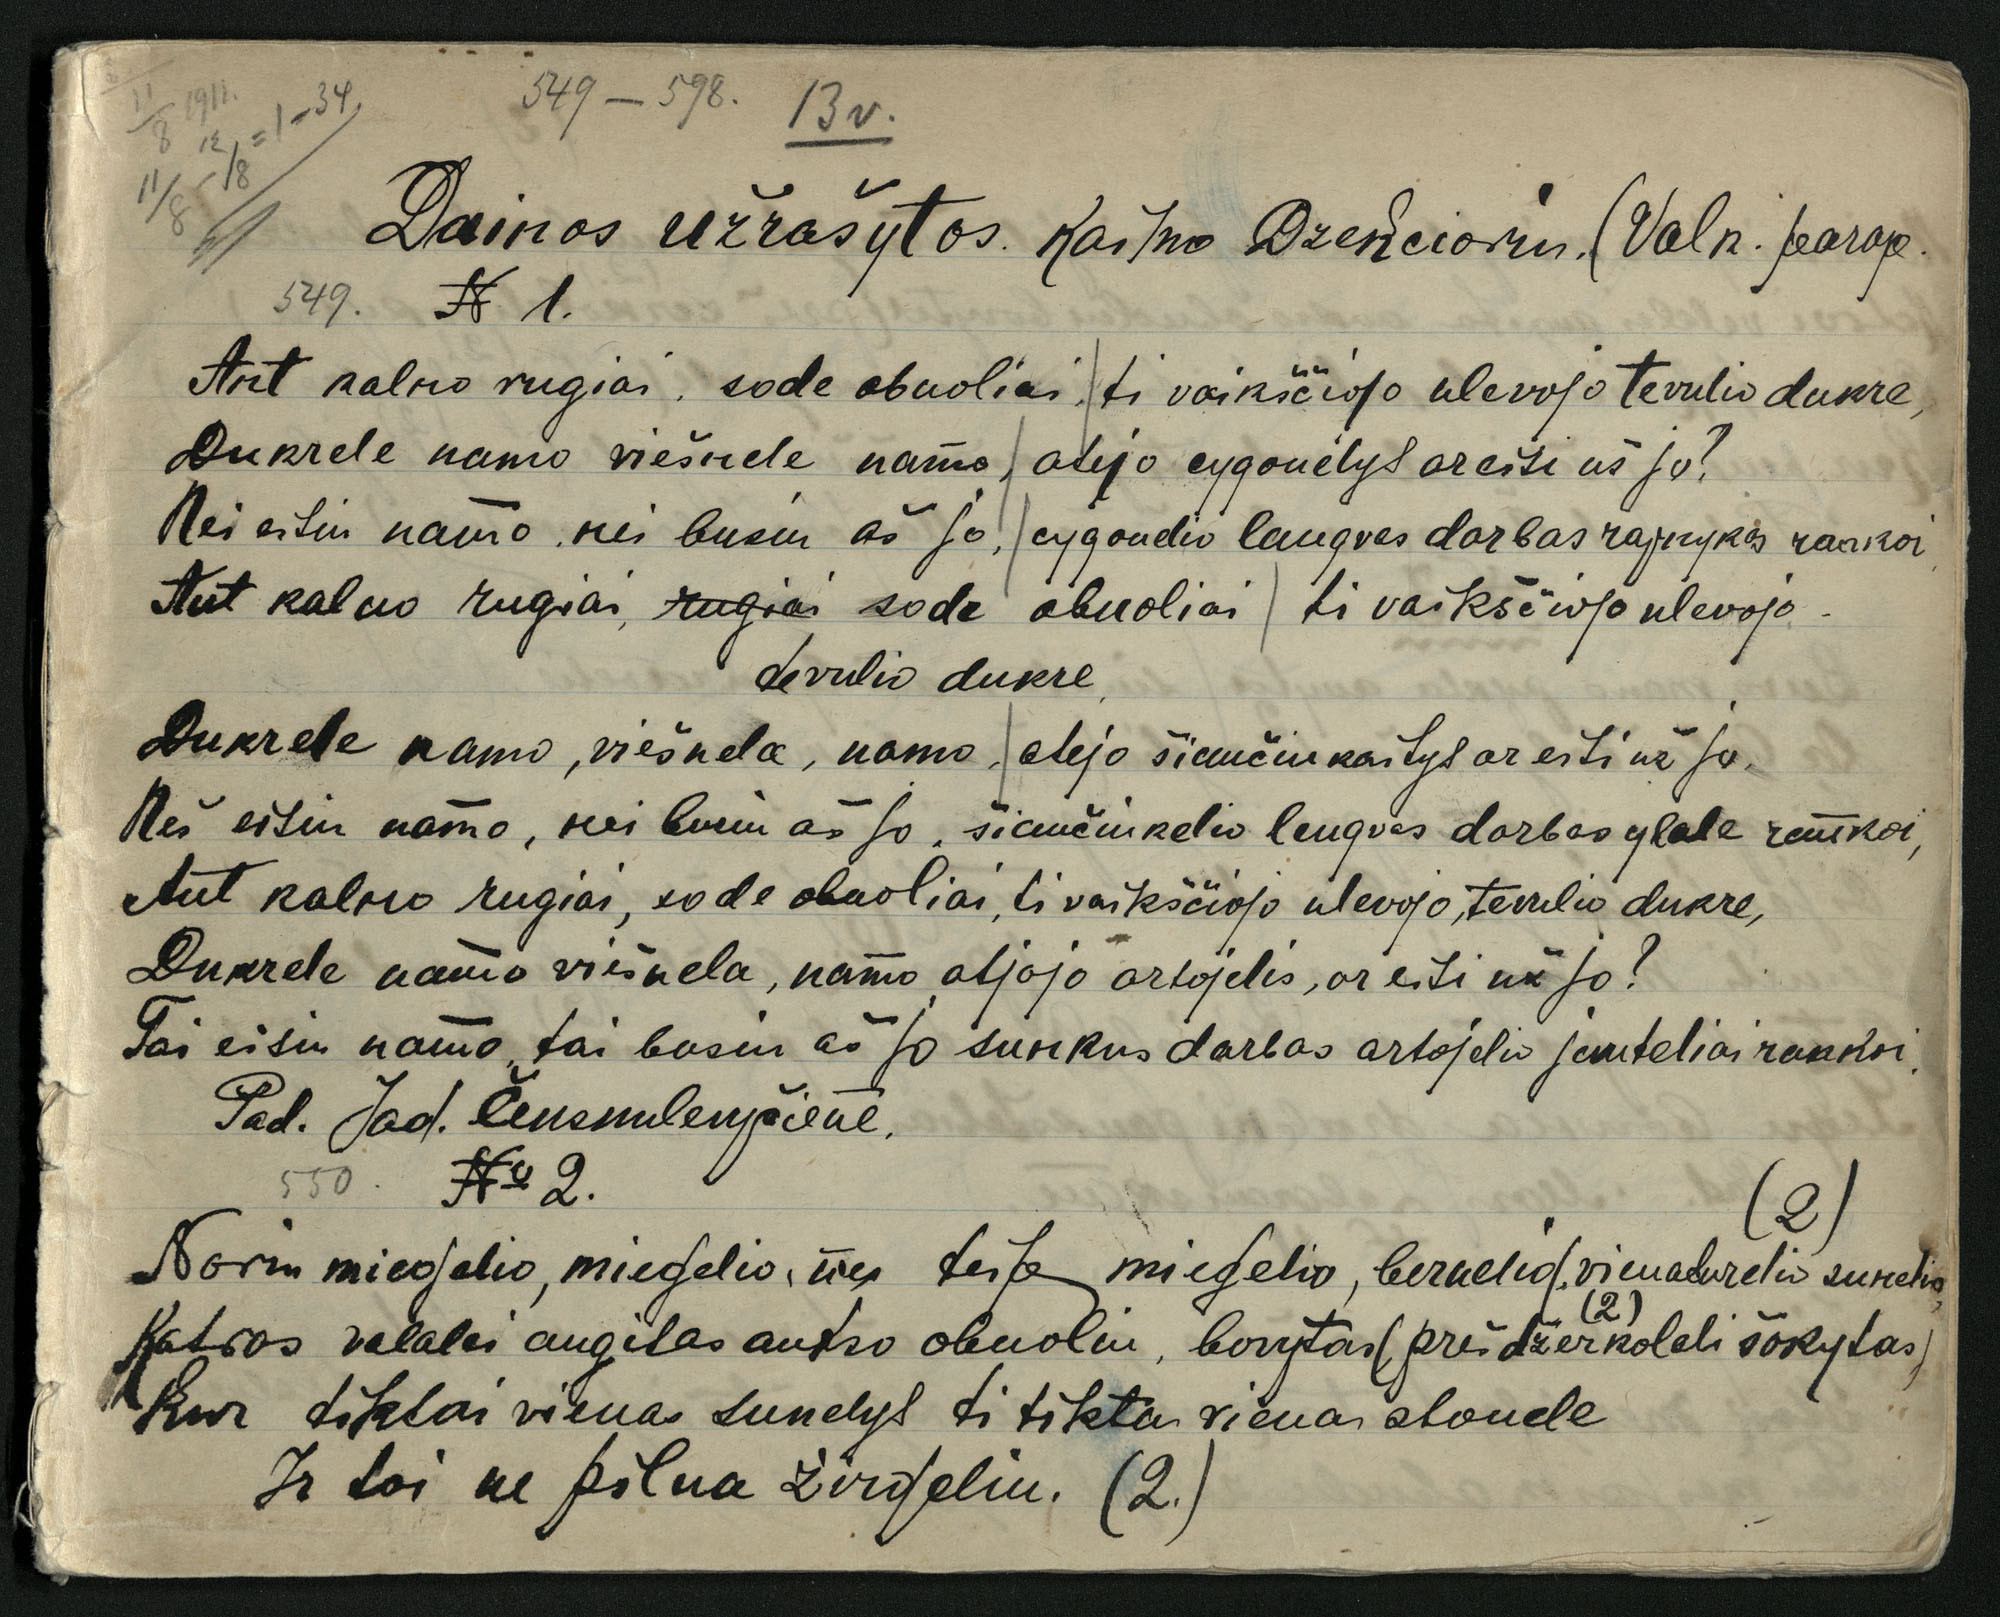 11/8 1911.
12/8 = 1–34
11/8
549 – 598. 13 v.
Dainos užrašytos. Kaimo Dzenčiorių. (Valk. parap.
549. № 1.
Ant kalno rugiai, sode obuoliai, / ti vaikščiojo ulevojo tevulio dukre,
Dukrele namo viešnele namo, / atejo cygonėlys ar eisi uš jo?
Nei eisiu namo, nei busiu aš jo, / cygonelio lengvas darbas rajnykas rankoi
Ant kalno rugiai, rugiai sode obuoliai / ti vaikščiojo ulevojo
tevulio dukre,
Dukrele namo, viešnela, namo, / atejo šiaučiukaitys ar eisi už jo.
Neš eisiu namo, nei busiu aš jo, šiaučiukelio lengvas darbas ylale rankoi,
Ant kalno rugiai, sode obuoliai, ti vaikščiojo ulevojo, tevulio dukre,
Dukrele namo viešnela, namo atjojo artojelis, ar eisi už jo?
Tai eisiu namo, tai busiu aš jo sunkus darbas artojelio jauteliai rankoi.
Pad. Jad.
550. № 2.
(2)
Noriu miegelio, miegelio, miegelio, bernelio, vienaturelio sunelio,
Katros valalei augitas autso obuoliu, bovytas (prei džerkolali šokytas) (2)
Kur tiktai vienas sunelys ti tiktai vienas stonele
Ir toi ne pilna žirgeliu. (2.)